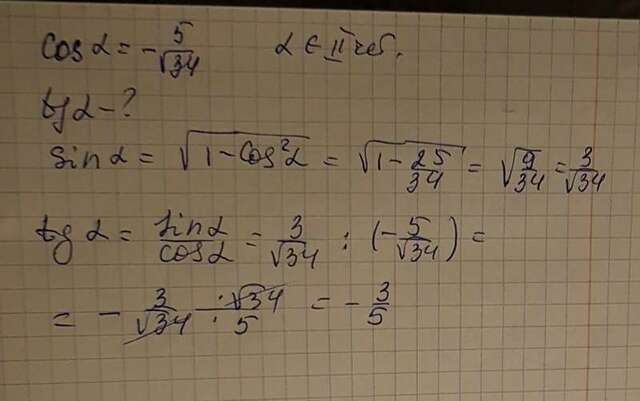 cos α = - 5/√34   α ∈ II чет.
tg α - ?
sin α = √(1 - cos²α) = √(1 - 25/34) = √(9/34) = 3/√34
tg α = sin α/cos α = 3/√34 : (- 5/√34) =
= - 3/√34 · √34/5 = - 3/5